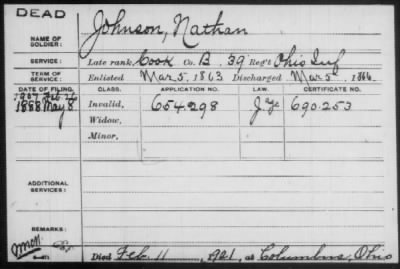 DEAD
Johnson, Nathan
NAME OF SOLDIER:
SERVICE: Late rank, Cook Co. B, 39 Reg't Ohio Inf
TERM OF SERVICE: Enlisted Mar. 5, 1863 Discharged Mar. 5, 1866.
DATE OF FILING. CLASS. APPLICATION NO. LAW. CERTIFICATE NO.
1907 Feb 26
1888 May 8 Invalid, 654.298 690.253
Widow,
Minor,
ADDITIONAL SERVICES:
REMARKS:
Died Feb. 11, 1921, at Columbus, Ohio